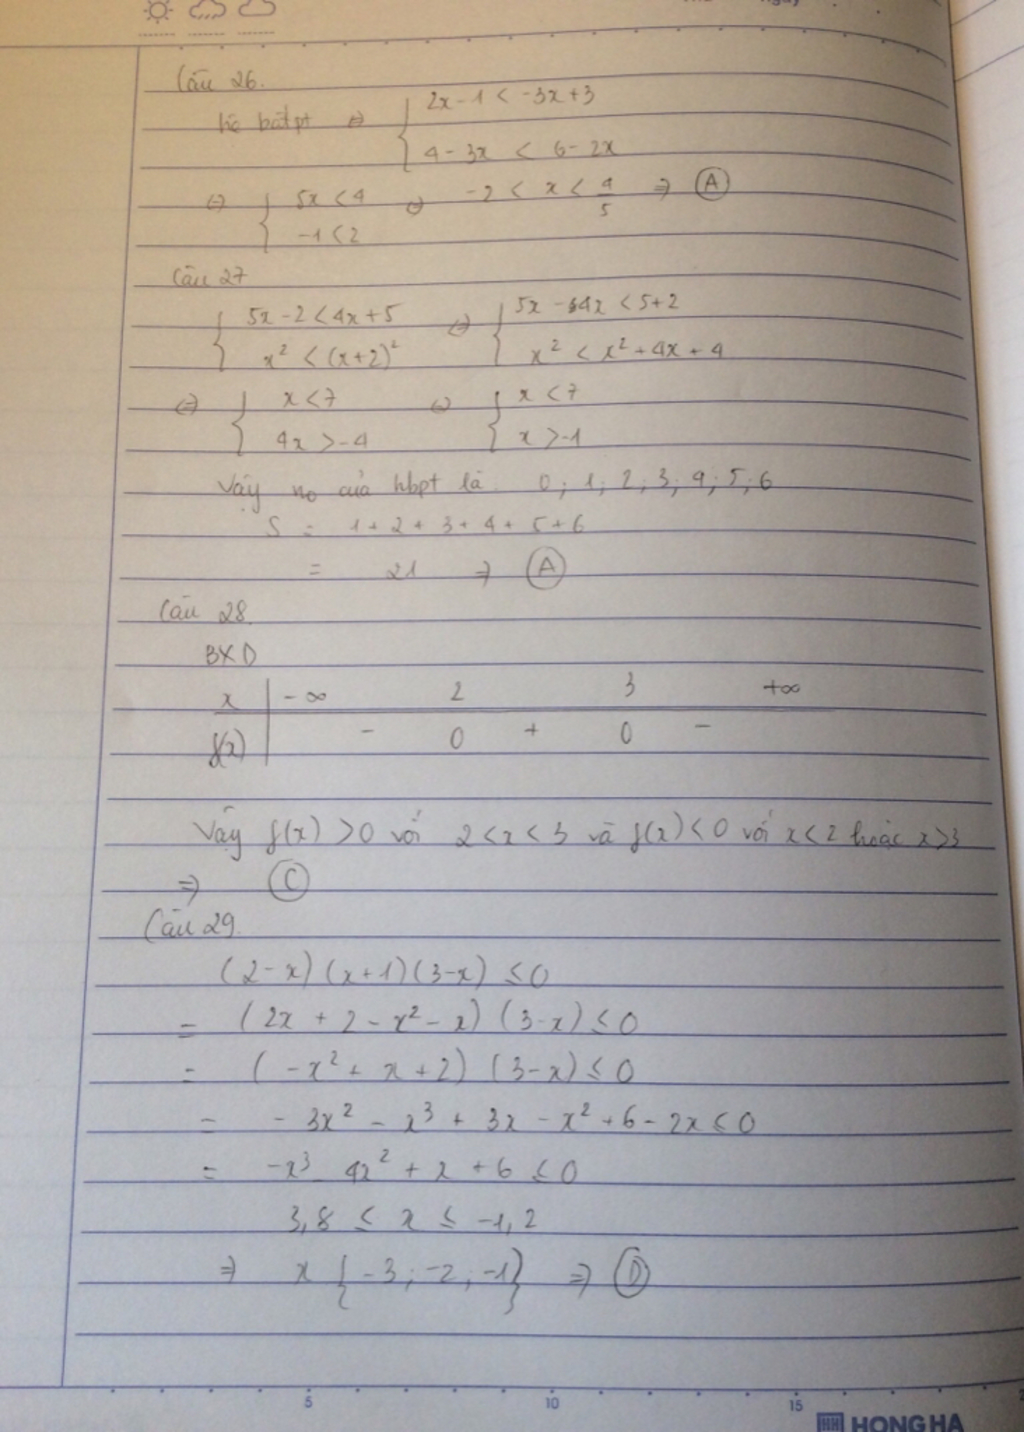 Câu 26.
hệ bất pt ⇔ { 2x - 1 < -3x + 3
4 - 3x < 6 - 2x
⇔ { 5x < 4 ⇔ -2 < x < 4/5 ⇒ (A)
-1 < 2
Câu 27
{ 5x - 2 < 4x + 5 ⇔ { 5x - 4x < 5 + 2
x² < (x+2)² x² < x² + 4x + 4
⇔ { x < 7 ⇔ { x < 7
4x > -4 x > -1
Vậy no của hbpt là 0; 1; 2; 3; 4; 5; 6
S = 1 + 2 + 3 + 4 + 5 + 6
= 21 ⇒ (A)
Câu 28.
BXD
x | -∞ 2 3 +∞
f(x) | - 0 + 0 -
Vậy f(x) > 0 với 2 < x < 3 và f(x) < 0 với x < 2 hoặc x > 3
⇒ (C)
Câu 29.
(2-x)(x+1)(3-x) ≤ 0
= (2x + 2 - x² - x)(3-x) ≤ 0
= (-x² + x + 2)(3-x) ≤ 0
= -3x² - x³ + 3x - x² + 6 - 2x ≤ 0
= -x³ - 4x² + x + 6 ≤ 0
3,8 ≤ x ≤ -1,2
⇒ x {-3; -2; -1} ⇒ (D)
5 10 15
HH HONG HA